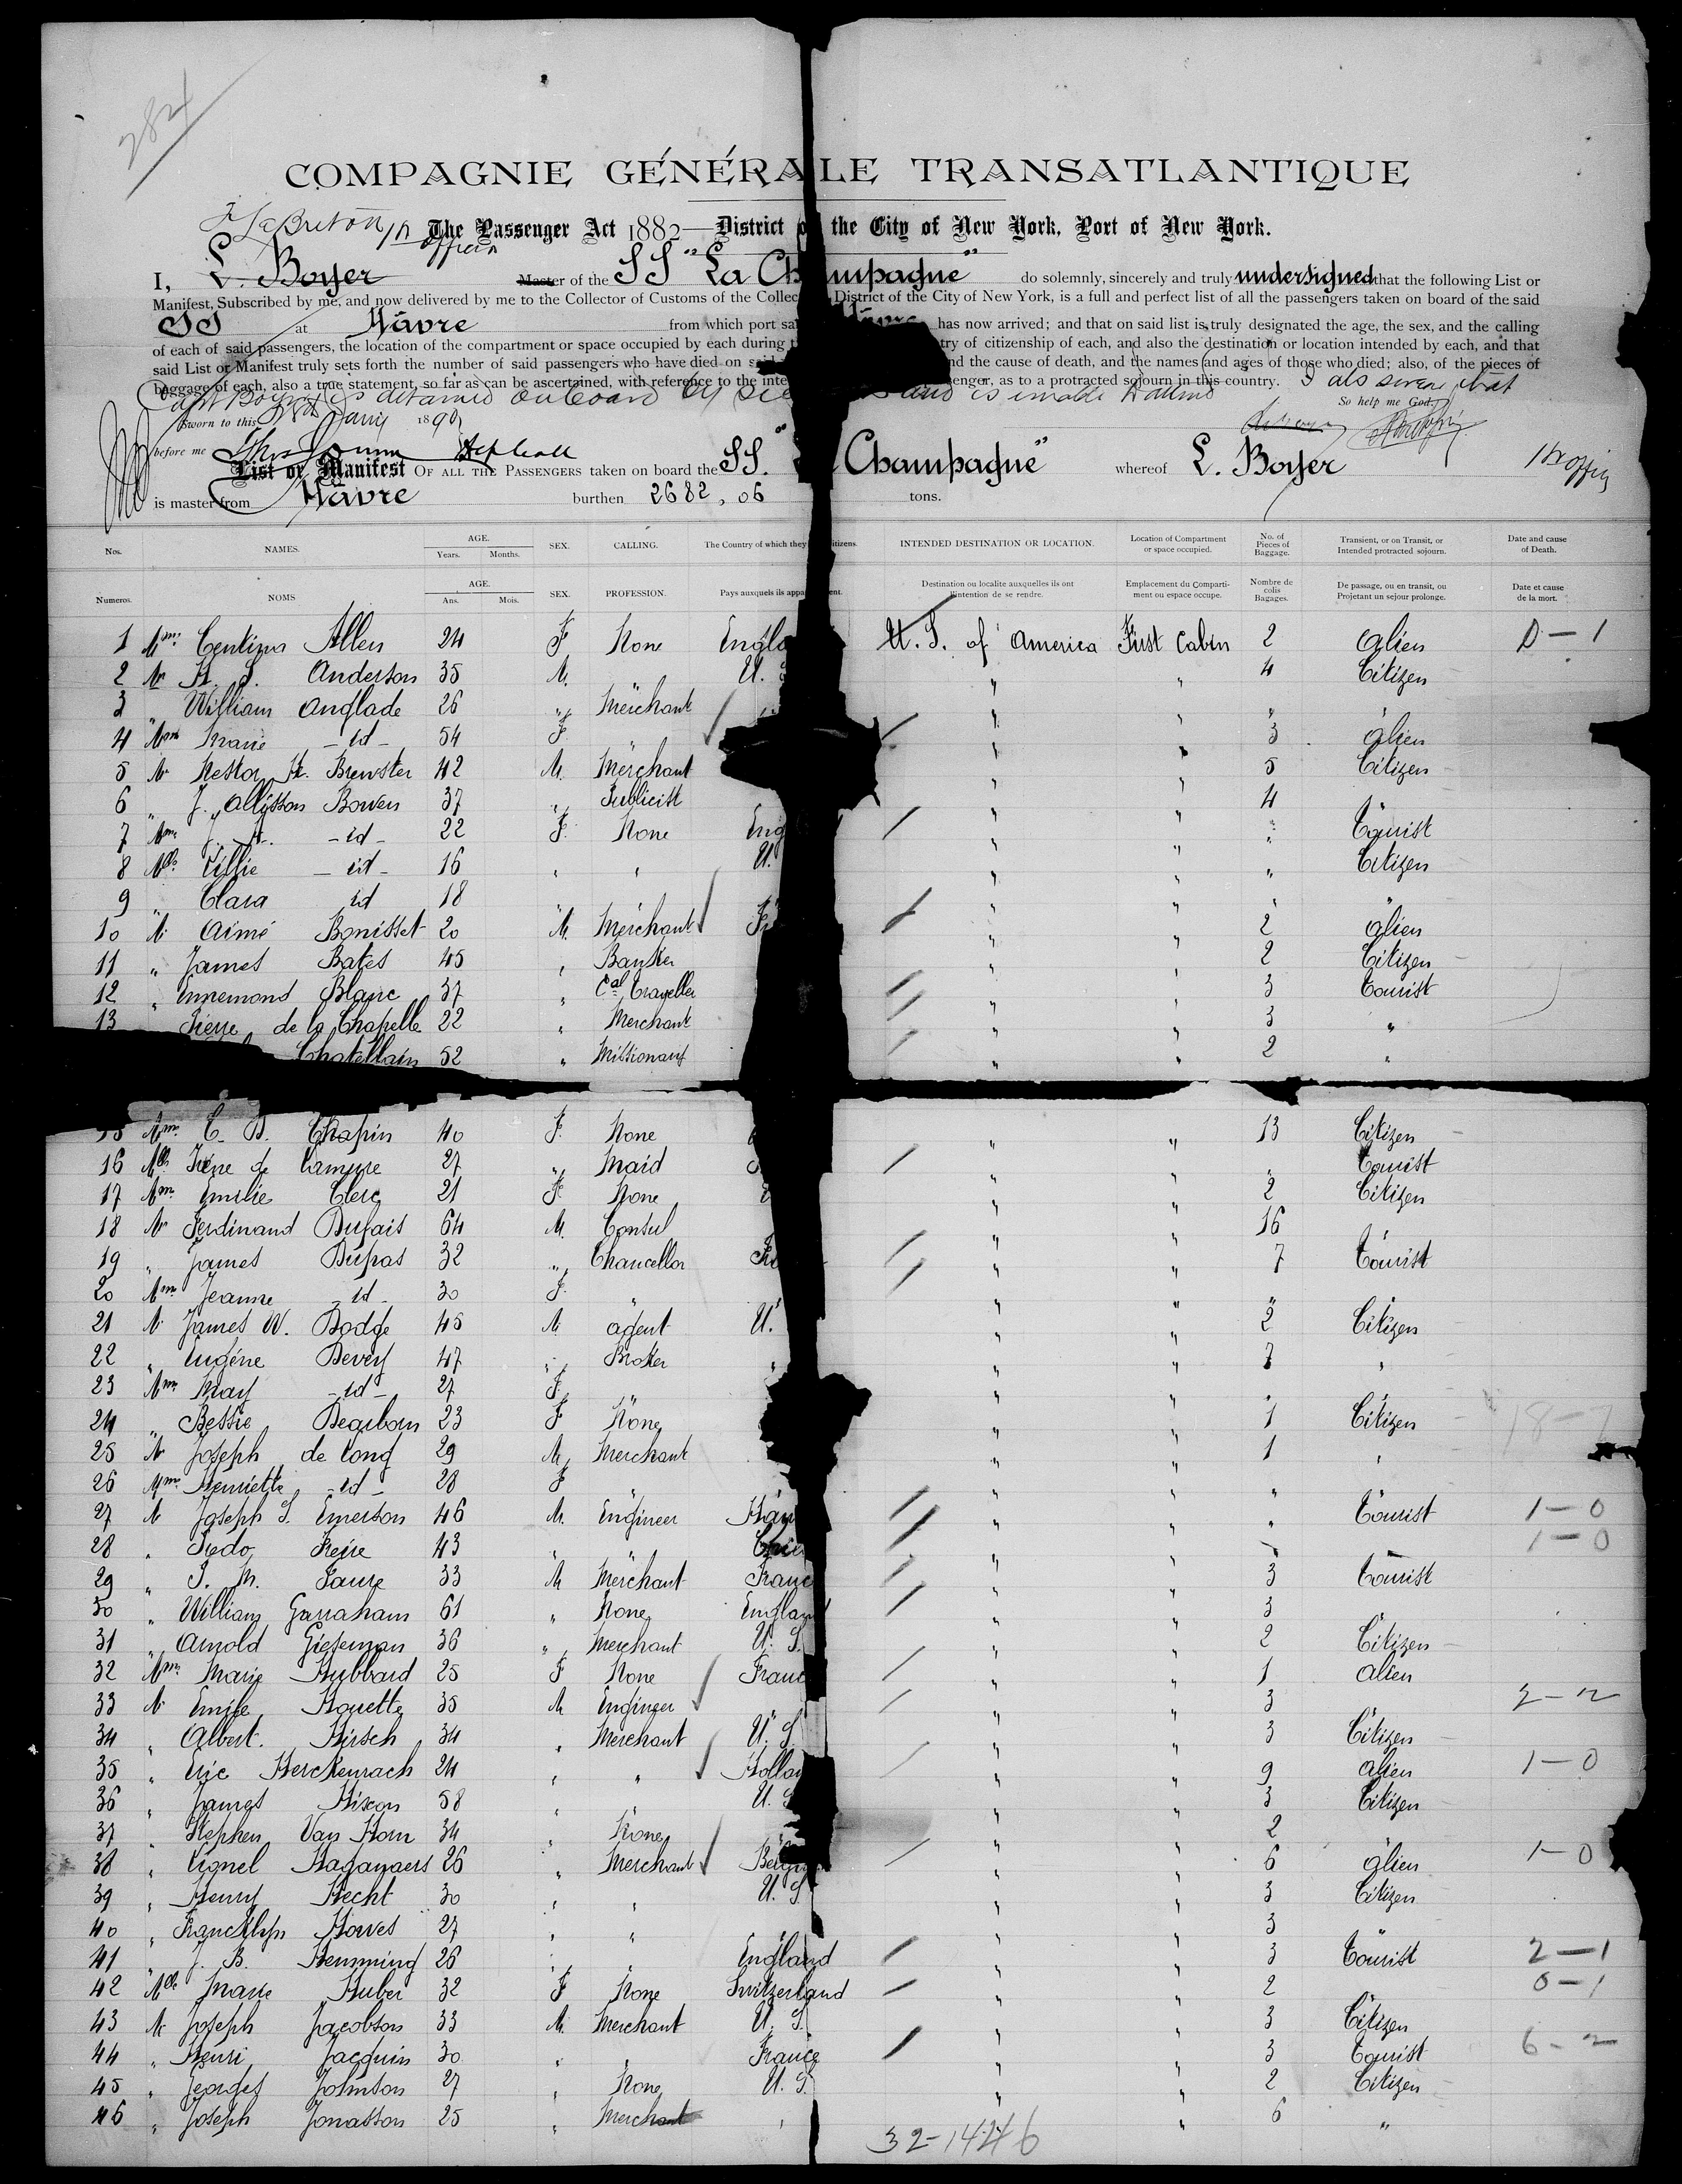 2824
COMPAGNIE GÉNÉRALE TRANSATLANTIQUE
The Passenger Act 1882—District of the City of New York, Port of New York.
I, L. Boyer Master of the SS "La Champagne" do solemnly, sincerely and truly undersigned that the following List or
Manifest, Subscribed by me, and now delivered by me to the Collector of Customs of the Collec District of the City of New York, is a full and perfect list of all the passengers taken on board of the said
SS at Hâvre from which port has now arrived; and that on said list is truly designated the age, the sex, and the calling
of each of said passengers, the location of the compartment or space occupied by each during try of citizenship of each, and also the destination or location intended by each, and that
said List or Manifest truly sets forth the number of said passengers who have died on said nd the cause of death, and the names and ages of those who died; also, of the pieces of
baggage of each, also a true statement, so far as can be ascertained, with reference to the inte senger, as to a protracted sojourn in this country. I als swear that
Capt Boyer is detained onboard by and is unable to attend So help me God.
Sworn to this 1890
before me
List or Manifest OF ALL THE PASSENGERS taken on board the SS. Champagne" whereof L. Boyer
is master from Hâvre burthen 2682,06 tons.
Nos. NAMES. AGE. Years. Months. SEX. CALLING. The Country of which they itizens. INTENDED DESTINATION OR LOCATION. Location of Compartment or space occupied. No. of Pieces of Baggage. Transient, or on Transit, or Intended protracted sojourn. Date and cause of Death.
Numeros. NOMS AGE. Ans. Mois. SEX. PROFESSION. Pays auxquels ils appa ent. Destination ou localite auxquelles ils ont l'intention de se rendre. Emplacement du Comparti- ment ou espace occupe. Nombre de colis Bagages. De passage, ou en transit, ou Projetant un sejour prolonge. Date et cause de la mort.
1 Mme Allen 24 F None Engla U. S. of America First Cabin 2 alien 0-1
2 Mr H. S. Anderson 35 M. U. S " " 4 Citizen
3 " William Anglade 26 " Merchant " " " "
4 Mme Marie -id- 54 F " " " 3 alien
5 Mr Nestor H. Brewster 42 M. Merchant " " 5 Citizen
6 " J. Allisson Bowen 37 " Publicist " " 4
7 Mme J. A. -id- 22 F. None Eng " " " Tourist
8 Mlle Lillie -id- 16 " " U. " " " Citizen
9 " Clara id 18 " " " " " "
10 Mr Aimé Bonisset 20 M. Merchant Fr " " 2 alien
11 " James Bates 45 " Banker " " 2 Citizen
12 " Ennemond Blanc 37 " Cal Traveller " " 3 Tourist
13 " Pierre de la Chapelle 22 " Merchant " " 3 "
Chatellain 52 " Missionary " " 2 "
15 Mme C. D. Chapin 40 F. None " " 13 Citizen
16 Mlle Irène de 27 " Maid " " " Tourist
17 Mme Emilie Clerc 21 F. None " " 2 Citizen
18 Mr Ferdinand Dufais 64 M. Consul " " 16
19 " James Dupas 32 " Chancellor Fr " " 7 Tourist
20 Mme Jeanne -id- 30 F. " " " "
21 Mr James W. Dodge 45 M. agent U. " " 2 Citizen
22 " Eugène Devey 47 " Broker " " " 7 "
23 Mme May -id- 27 F. " " " "
24 " Bessie Dearborn 23 F None " " 1 Citizen 18-7
25 Mr Joseph de Long 29 M. Merchant " " 1 "
26 Mme Henriette -id- 28 F " " " "
27 Mr Joseph S. Emerson 46 M. Engineer Haw " " " Tourist 1-0
28 " Pedo Freire 43 " " " " 1-0
29 " J. M. Faure 33 M Merchant Franc " " 3 Tourist
30 " William Garraham 61 " None Englan " " 3
31 " Arnold Gieseman 36 " Merchant U. S. " " 2 Citizen
32 Mme Marie Hubbard 25 F None Franc " " 1 alien
33 Mr Emile Houette 35 M Engineer " " 3 2-2
34 " Albert. Hirsch 34 " Merchant U. S " " 3 Citizen
35 " Eric Herckenrach 24 " " Hollan " " 9 alien 1-0
36 " James Hixon 58 " U. S " " 3 Citizen
37 " Stephen Van Horn 34 " None " " 2
38 " Lionel Hagayaers 26 " Merchant Belgi " " 6 alien 1-0
39 " Henry Hecht 30 " " U. S " " 3 Citizen
40 " Francklyn Howes 27 " " " " 3
41 " J. B. Hemming 26 " " England " " 3 Tourist 2-1
42 Mlle Marie Huber 32 F None Switzerland " " 2 0-1
43 Mr Joseph Jacobson 33 M. Merchant U. S. " " 3 Citizen
44 " Henri Jacquin 30 " " France " " 3 Tourist 6-2
45 " Georges Johnson 27 " None U. S. " " 2 Citizen
46 " Joseph Jonasson 25 " Merchant " " " 6 "
32-14